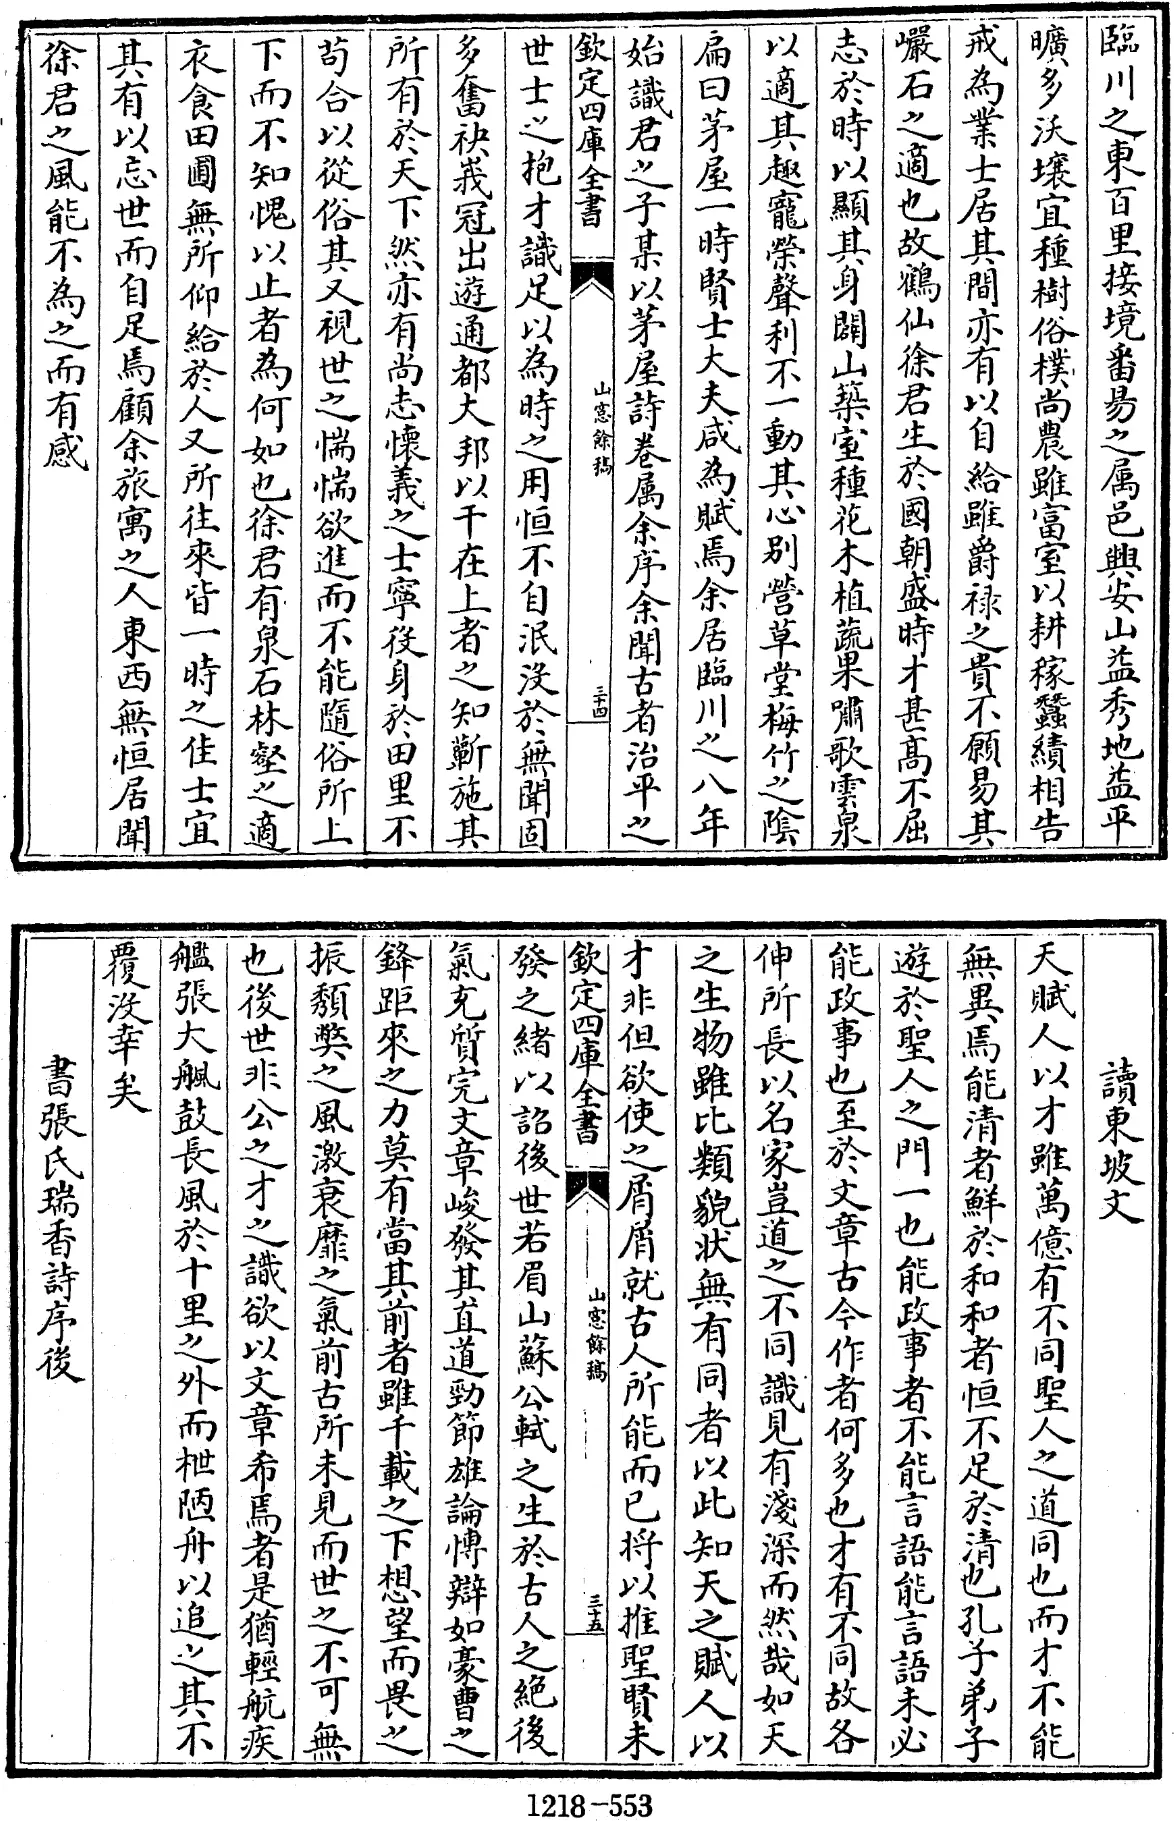 臨川之東百里接境番昜之属邑興安山益秀地益平
曠多沃壤宜種樹俗樸尚農雖富室以耕稼蠶績相告
戒為業士居其間亦有以自給雖爵禄之貴不願易其
巗石之適也故鶴仙徐君生於國朝盛時才甚髙不屈
志於時以顯其身闢山築室種花木植蔬果嘯歌雲泉
以適其趣寵榮聲利不一動其心别營草堂梅竹之隂
扁曰茅屋一時賢士大夫咸為賦焉余居臨川之八年
始識君之子某以茅屋詩卷属余序余聞古者治平之
欽定四庫全書
山窓餘稿
三十四
世士之抱才識足以為時之用恒不自泯没於無聞固
多奮袂峩冠出遊通都大邦以干在上者之知蘄施其
所有於天下然亦有尚志懷義之士寧役身於田里不
苟合以從俗其又視世之惴惴欲進而不能隨俗所上
下而不知愧以止者為何如也徐君有泉石林壑之適
衣食田圃無所仰給於人又所往來皆一時之佳士宜
其有以忘世而自足焉顧余旅寓之人東西無恒居聞
徐君之風能不為之而有感
讀東坡文
天賦人以才雖萬億有不同聖人之道同也而才不能
無異焉能清者鮮於和和者恒不足於清也孔子弟子
遊於聖人之門一也能政事者不能言語能言語未必
能政事也至於文章古今作者何多也才有不同故各
伸所長以名家豈道之不同識見有淺深而然哉如天
之生物雖比類貌状無有同者以此知天之賦人以
才非但欲使之屑屑就古人所能而已将以推聖賢未
欽定四庫全書
山窓餘稿
三十五
發之緒以詔後世若眉山蘇公軾之生於古人之絶後
氣充質完文章峻發其直道勁節雄論博辯如豪曹之
鋒距來之力莫有當其前者雖千載之下想望而畏之
振頽獘之風激衰靡之氣前古所未見而世之不可無
也後世非公之才之識欲以文章希焉者是猶輕航疾
艦張大颿鼓長風於十里之外而枻陋舟以追之其不
覆没幸矣
書張氏瑞香詩序後
1218-553